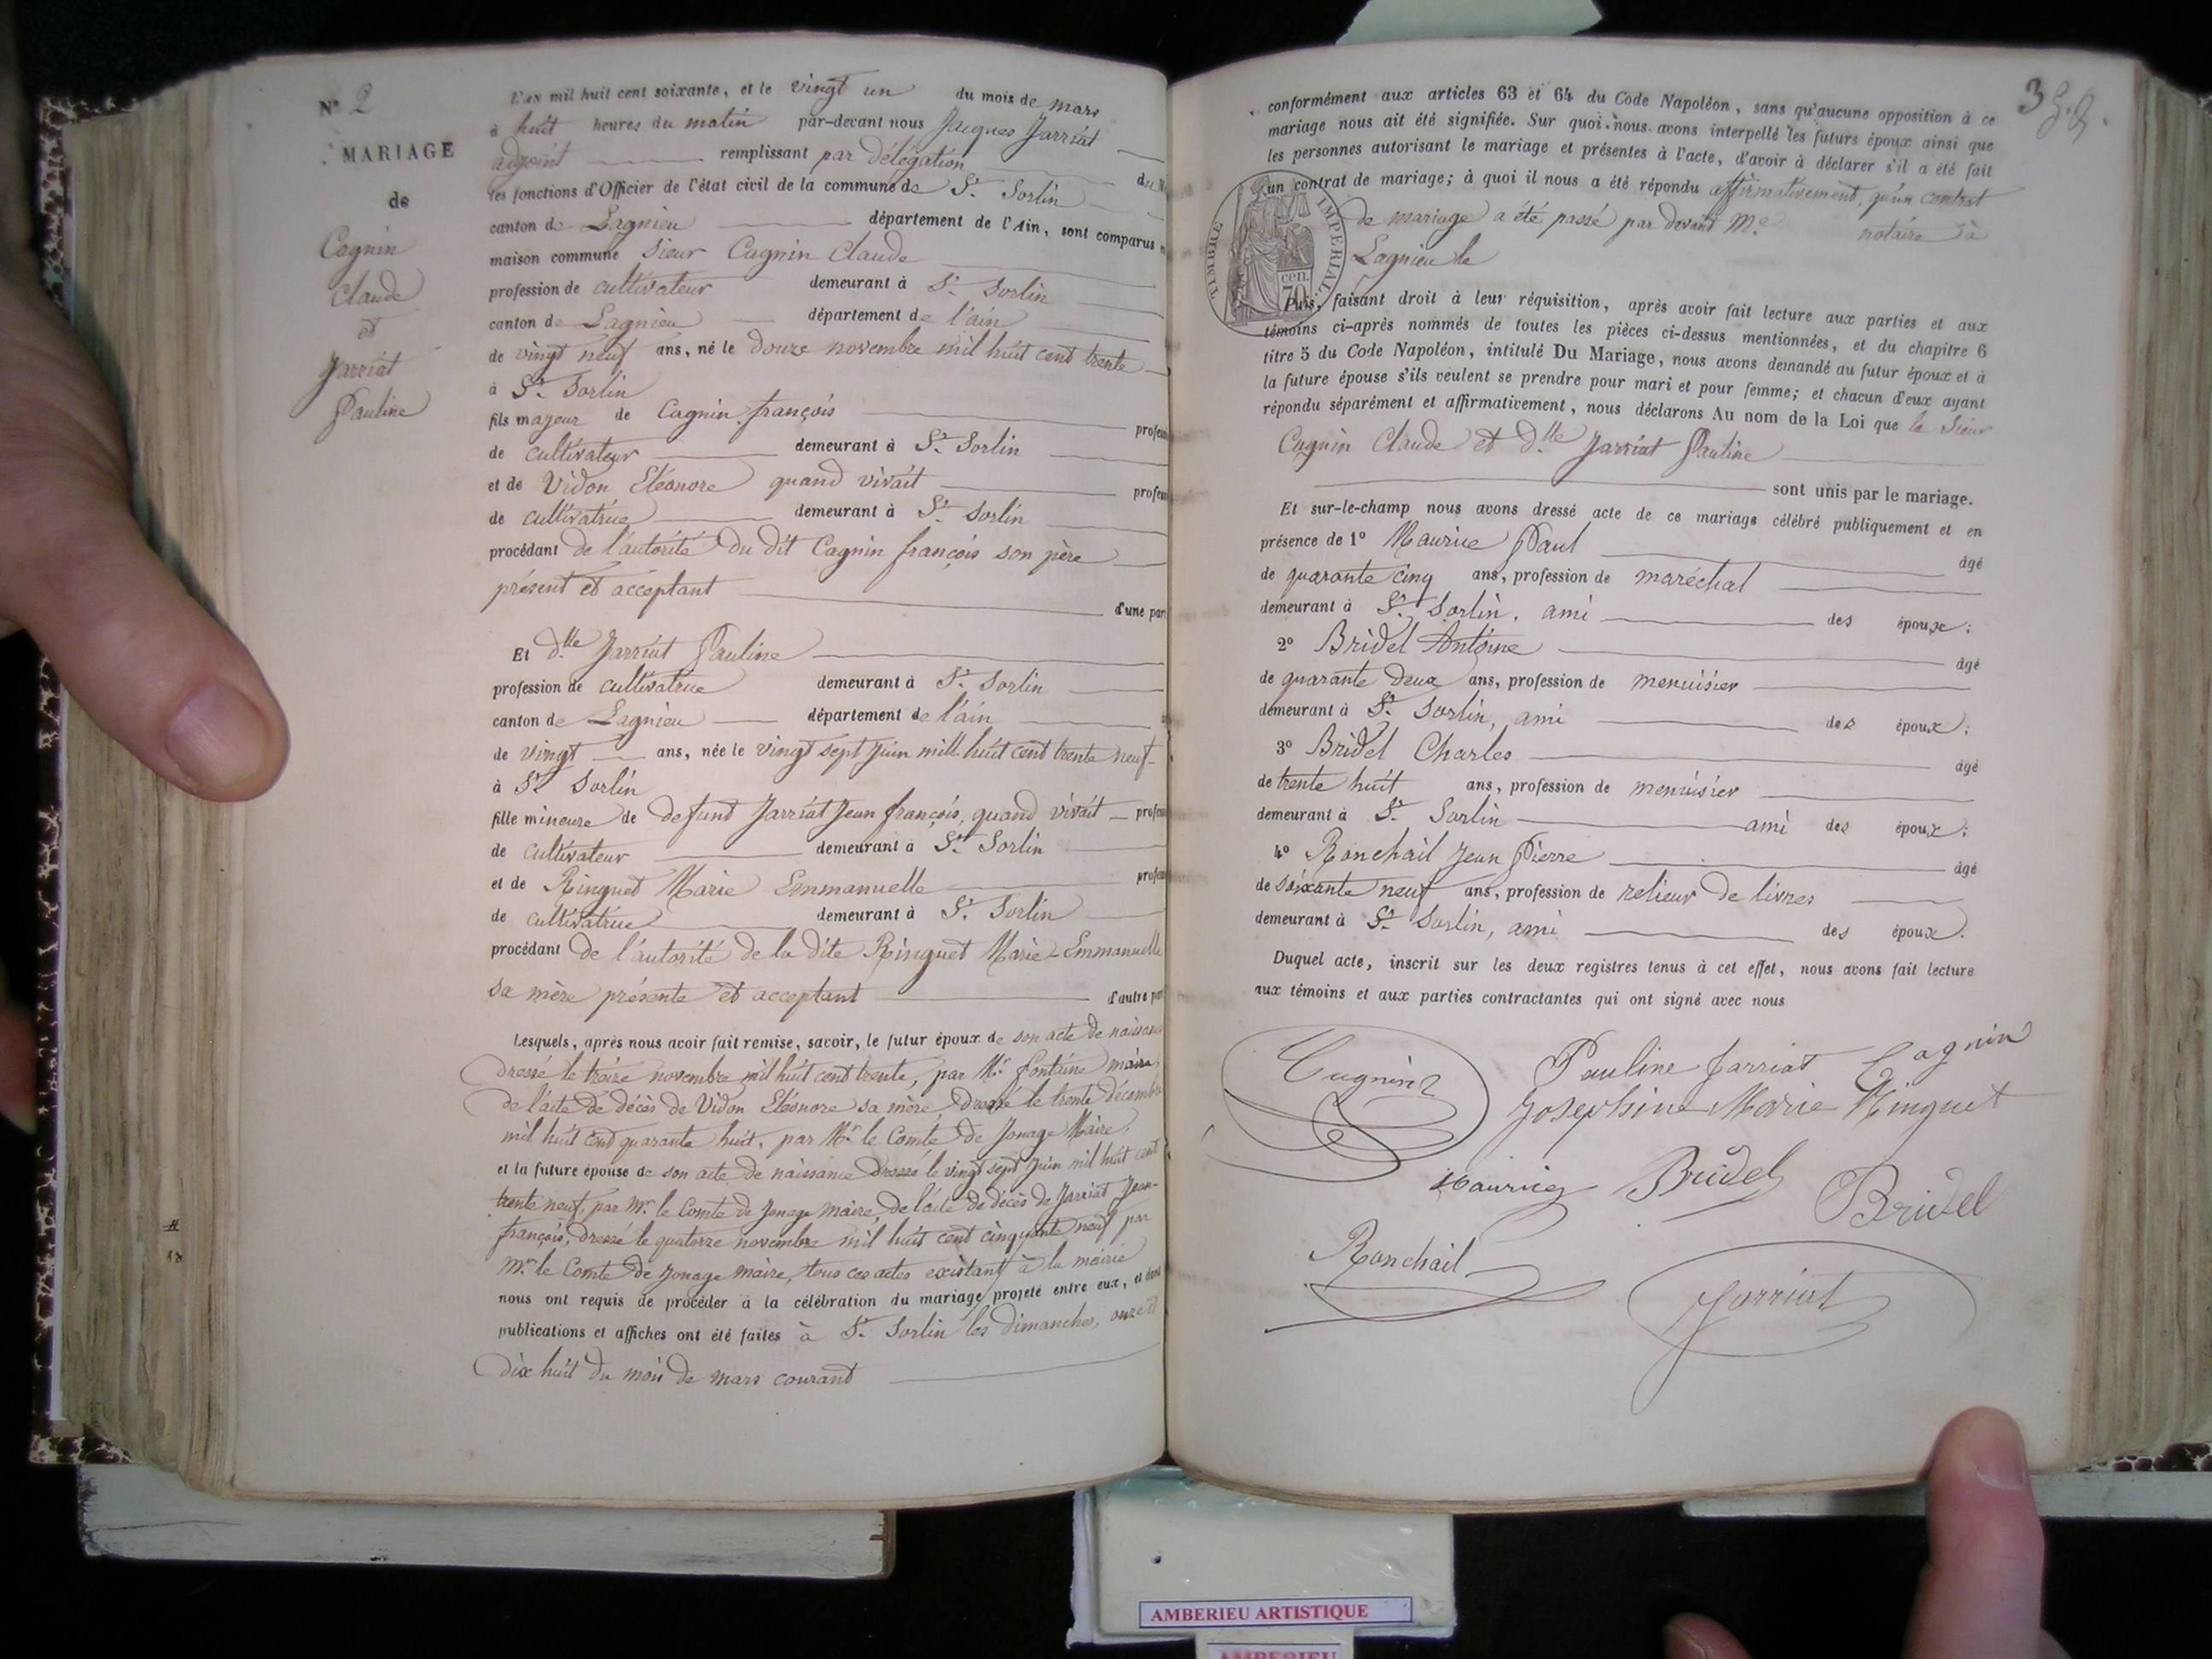 N° 2
MARIAGE
de
Cagnin
Claude
et
Jarriat
Pauline
L'an mil huit cent soixante, et le vingt un du mois de mars
à huit heures du matin par-devant nous Jacques Jarriat
adjoint remplissant par délégation
les fonctions d'Officier de l'état civil de la commune de St. Sorlin
canton de Lagnieu département de l'Ain, sont comparus
maison commune Sieur Cagnin Claude
profession de cultivateur demeurant à St. Sorlin
canton de Lagnieu département de l'ain
de vingt neuf ans, né le douze novembre mil huit cent trente
à St. Sorlin
fils majeur de Cagnin françois
de cultivateur demeurant à St. Sorlin
et de Vidon Eléonore quand vivait
de cultivatrice demeurant à St. Sorlin
procédant de l'autorité du dit Cagnin françois son père
présent et acceptant d'une part
Et dlle Jarriat Pauline
profession de cultivatrice demeurant à St. Sorlin
canton de Lagnieu département de l'ain
de vingt ans, née le vingt sept juin mill huit cent trente neuf
à St Sorlin
fille mineure de defunt Jarriat Jean françois, quand vivait
de cultivateur demeurant à St. Sorlin
et de Ringuet Marie Emmanuelle
de cultivatrice demeurant à St. Sorlin
procédant de l'autorité de la dite Ringuet Marie-Emmanuelle
sa mère présente et acceptant d'autre part
Lesquels, après nous avoir fait remise, savoir, le futur époux de son acte de naissance
dressé le treize novembre mil huit cent trente, par Mr. fontaine maire,
de l'acte de décès de Vidon Eléonore sa mère, dressé le trente décembre
mil huit cent quarante huit, par Mr. le Comte de Jonage Maire,
et la future épouse de son acte de naissance dressé le vingt sept juin mil huit cent
trente neuf, par Mr. le Comte de Jonage maire, de l'acte de décès de Jarriat Jean-
françois, dressé le quatorze novembre mil huit cent cinquante neuf par
Mr. le Comte de Jonage maire, tous ces actes existant à la mairie
nous ont requis de procéder à la célébration du mariage projeté entre eux, et dont
publications et affiches ont été faites à St. Sorlin les dimanches, onze et
dix huit du mois de mars courant
conformément aux articles 63 et 64 du Code Napoléon, sans qu'aucune opposition à ce
mariage nous ait été signifiée. Sur quoi nous avons interpellé les futurs époux ainsi que
les personnes autorisant le mariage et présentes à l'acte, d'avoir à déclarer s'il a été fait
un contrat de mariage; à quoi il nous a été répondu affirmativement, qu'un contrat
de mariage a été passé par devant Me notaire à
Lagnieu le
TIMBRE IMPERIAL
cen.
70
Puis, faisant droit à leur réquisition, après avoir fait lecture aux parties et aux
témoins ci-après nommés de toutes les pièces ci-dessus mentionnées, et du chapitre 6
titre 5 du Code Napoléon, intitulé Du Mariage, nous avons demandé au futur époux et à
la future épouse s'ils veulent se prendre pour mari et pour femme; et chacun d'eux ayant
répondu séparément et affirmativement, nous déclarons Au nom de la Loi que le Sieur
Cagnin Claude et dlle Jarriat Pauline
sont unis par le mariage.
Et sur-le-champ nous avons dressé acte de ce mariage célébré publiquement et en
présence de 1° Maurice Paul âgé
de quarante cinq ans, profession de maréchal
demeurant à St. Sorlin, ami des époux;
2° Bridel Antoine âgé
de quarante deux ans, profession de menuisier
demeurant à St. Sorlin, ami des époux;
3° Bridel Charles âgé
de trente huit ans, profession de menuisier
demeurant à St. Sorlin ami des époux;
4° Ronchail Jean Pierre âgé
de soixante neuf ans, profession de relieur de livres
demeurant à St. Sorlin, ami des époux.
Duquel acte, inscrit sur les deux registres tenus à cet effet, nous avons fait lecture
aux témoins et aux parties contractantes qui ont signé avec nous
Cagnin Pauline Jarriat Cagnin
Josephine Marie Ringuet
Maurice Bridel Bridel
Ronchail
Jarriat
AMBERIEU ARTISTIQUE
AMBERIEU